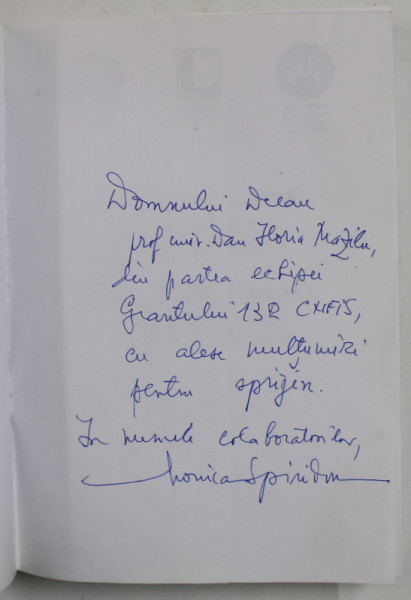 Domnului Decan
prof. univ. Dan Horia Mazilu,
din partea echipei
Grantului 132 CNCFIS,
cu alese mulțumiri
pentru sprijin.
În numele colaboratorilor,
Monica Spiridon